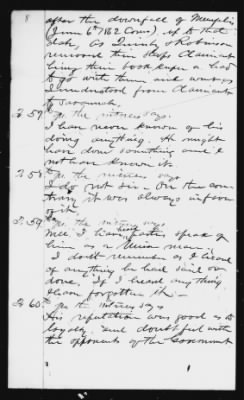 8
after the downfall of Memphis
(June 6" 1862 Coms) up to that
date, As Quinby & Robinson
removed their shops Claimant
being their book keeper, had
to go with them and was as
I understood from Claimant
to Savannah.
Q. 57 To pr. the witness says.
I have never known of his
doing anything. He might
have done something and I
not have known it.
Q. 58 To pr. the witness says
I do not sir - On the con
trary it was always in favor
of it.
Q. 59 To pr. the witness says
Well I have heard speak of
him as a Union man.
I don't remember as I heard
of anything he had said or
done. If I heard any thing
I have forgotten it -
Q. 60 To pr. the witness says
His reputation was good as to
loyalty. and doubtful with
the opponents of the Government